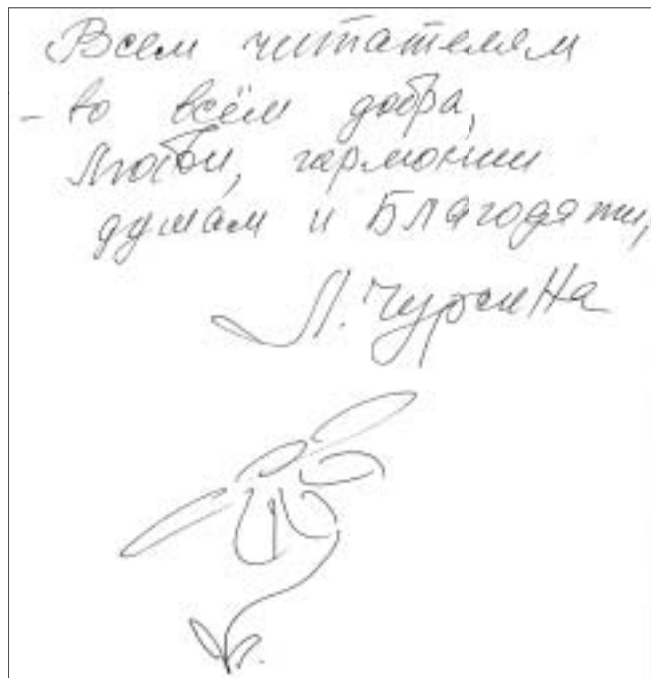 Всем читателям
- во всём добра,
Любви, гармонии
душам и Благодати,
Л. Чурсина